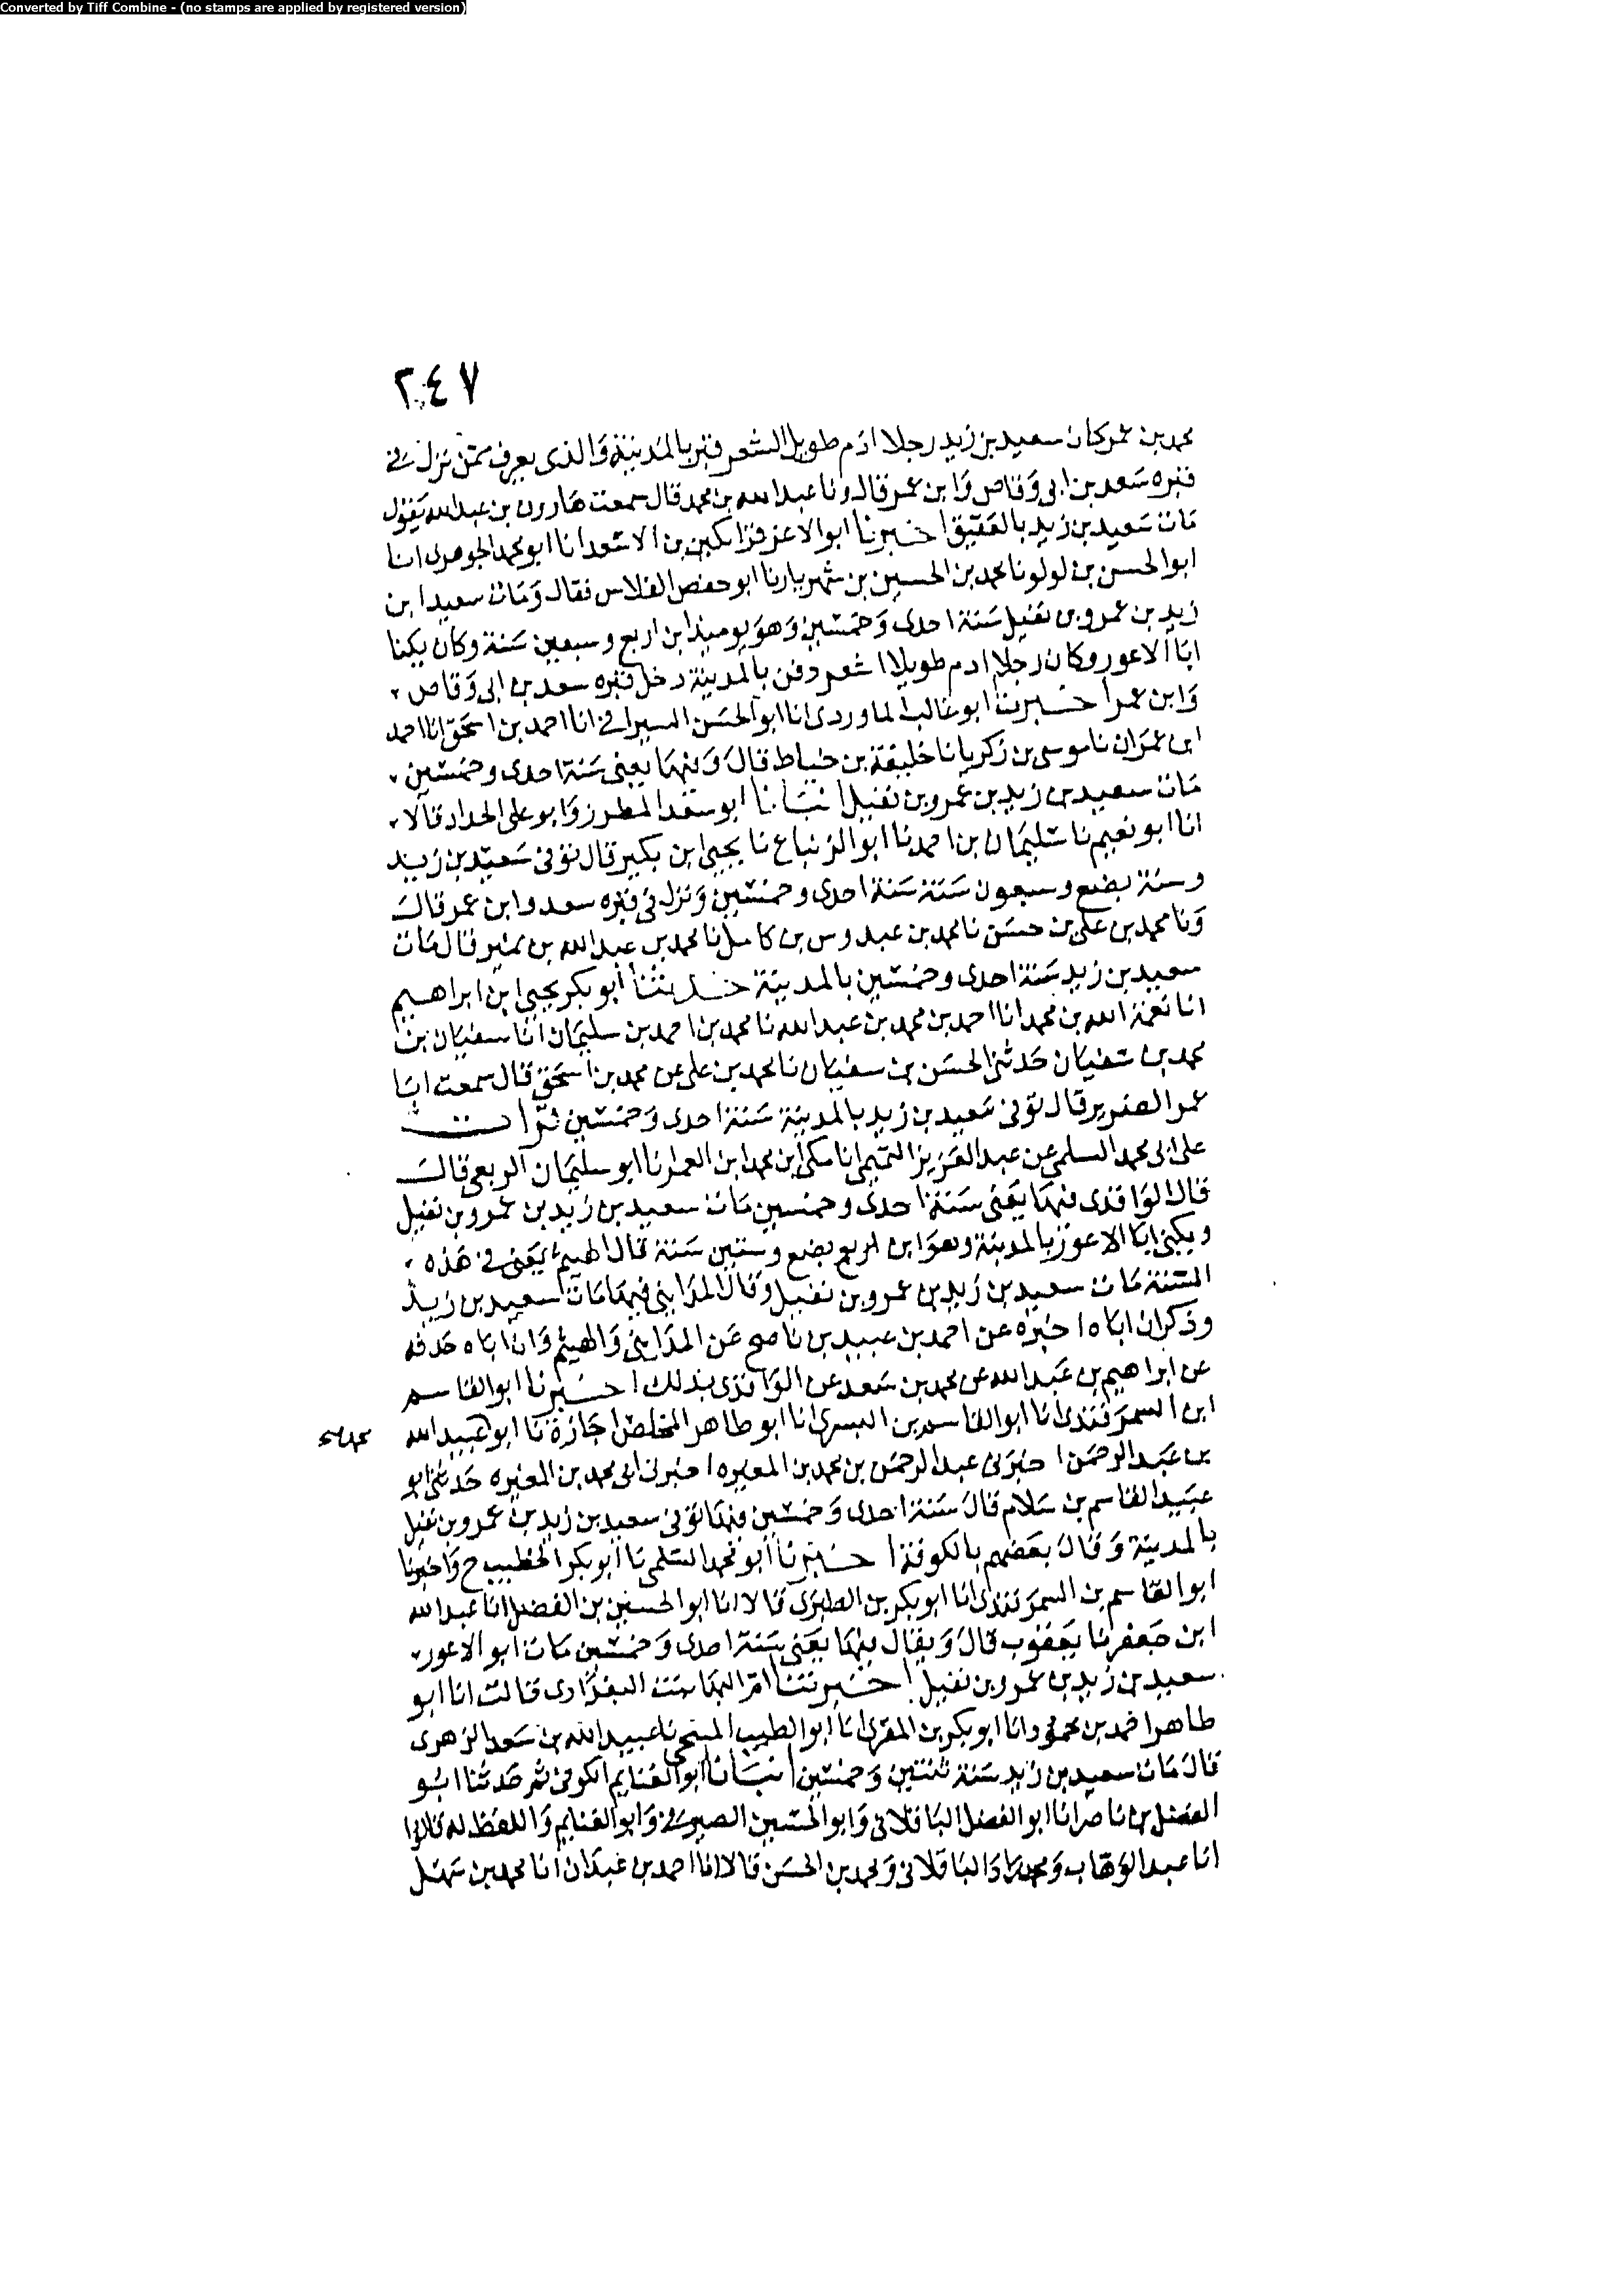 Converted by Tiff Combine - (no stamps are applied by registered version)
٢٤٧
محمد بن عمر كان سعيد بن زيد رجلا ادم طويل الشعر قبر بالمدينة والذى يعرف ممن نزل في
قبره سعد بن ابى وقاص وابن عمر قال ونا عبد الله بن محمد قال سمعت هارون بن عبد الله يقول
مات سعيد بن زيد بالعقيق اخبرنا ابو الاعز قراتكين بن الاسعد انا ابو محمد الجوهرى انا
ابو الحسن بن لولو نا محمد بن الحسين بن شهريار نا ابو حفص الفلاس فقال ومات سعيد ابن
زيد بن عمرو بن نفيل سنة احدى وخمسين وهو يوميذ ابن اربع وسبعين سنة وكان يكنا
ابا الاعور وكان رجلا ادم طويلا اشعر دفن بالمدينة دخل قبره سعد بن ابى وقاص
وابن عمر اخبرنا ابو غالب الماوردى انا ابو الحسن السيرافي انا احمد بن اسحق انا احمد
ابن عمران نا موسى بن زكريا نا خليفة بن خياط قال وفيها يعنى سنة احدى وخمسين
مات سعيد بن زيد بن عمرو بن نفيل انبانا ابو سعد المطرز وابو على الحداد قالا
انا ابو نعيم نا سليمان بن احمد نا ابو الزنباع نا يحيى ابن بكير قال توفى سعيد بن زيد
وسنه بضع وسبعون سنة سنة احدى وخمسين ونزل في قبره سعد وابن عمر قال
ونا محمد بن على بن حسن نا محمد بن عبدوس بن كامل نا محمد بن عبد الله بن نمير قال مات
سعيد بن زيد سنة احدى وخمسين بالمدينة حدثنا ابو بكر يحيى ابن ابراهيم
انا نعمة الله بن محمد انا احمد بن محمد بن عبد الله نا محمد بن احمد بن سليمان انا سفيان بن
محمد بن سفيان حدثنى الحسن بن سفيان نا محمد بن على عن محمد بن اسحق قال سمعت ابا
عمر الضرير قال توفى سعيد بن زيد بالمدينة سنة احدى وخمسين قرات
على ابى محمد السلمى عن عبد العزيز التميمى انا مكى ابن محمد ابن الغمر انا ابو سليمان الربعى قال
قال الواقدى فيها يعنى سنة احدى وخمسين مات سعيد بن زيد بن عمرو بن نفيل
ويكنى ابا الاعور بالمدينة وهو ابن اربع بضع وستين سنة قال الهيثم يعنى في هذه
السنة مات سعيد بن زيد بن عمرو بن نفيل وقال المداينى فيها مات سعيد بن زيد
وذكر ان اباه اخبره عن احمد بن عبيد بن ناصح عن المداينى والهيثم وان اباه حدثه
عن ابراهيم بن عبد الله عن محمد بن سعد عن الواقدى بذلك اخبرنا ابو القاسم
ابن السمرقندى انا ابو القاسم بن البسرى انا ابو طاهر المخلص اجازة نا ابو عبيد الله
بن عبد الرحمن اخبرنى عبد الرحمن بن محمد بن المغيره اخبرنى ابى محمد بن المغيره حدثنى ابو
عبيد القاسم بن سلام قال سنة احدى وخمسين فيها توفى سعيد بن زيد بن عمرو بن نفيل
بالمدينة وقال بعضهم بالكوفة اخبرنا ابو محمد السلمى نا ابو بكر الخطيب ح واخبرنا
ابو القاسم بن السمرقندى انا ابو بكر بن الطبرى قالا انا ابو الحسين بن الفضل انا عبد الله
ابن جعفر نا يعقوب قال ويقال فيها يعنى سنة احدى وخمسين مات ابو الاعور
سعيد بن زيد بن عمرو بن نفيل اخبرتنا ام البها بنت البغدادى قالت انا ابو
طاهر احمد بن محمود انا ابو بكر بن المقرى انا ابو الطيب المنبجى نا عبيد الله بن سعد الزهرى
قال مات سعيد بن زيد سنة ثنتين وخمسين انبانا ابو الغنايم الكوفى ثم حدثنا ابو
الفضل بن ناصر انا ابو الفضل الباقلانى وابو الحسين الصيرفي وابو الغنايم واللفظ له قالوا
انا عبد الوهاب بن محمد زاد الباقلانى ومحمد بن الحسن قالا انا احمد بن عبدان انا محمد بن سهل